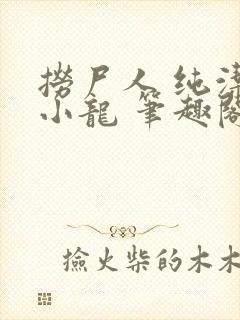 撈尸人 纯洁
小龍 筆趣閣
撿火柴的木木